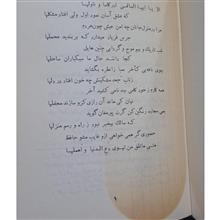 الا یا ایها الساقی ادر کاسا و ناولها
که عشق آسان نمود اول ولی افتاد مشکلها
مرا در منزل جانان چه امن عیش چون هردم
جرس فریاد میدارد که بربندید محملها
شب تاریک و بیم موج و گردابی چنین هایل
کجا دانند حال ما سبکباران ساحلها
ببوی نافه‌ی کاخر صبا زان طره بگشاید
ز تاب جعد مشکینش چه خون افتاد در دلها
همه کارم ز خود کامی به بدنامی کشید آخر
نهان کی ماند آن رازی کزو سازند محفلها
بمی سجاده رنگین کن گرت پیرمغان گوید
که سالک بیخبر نبود ز راه و رسم منزلها
حضوری گر همی خواهی ازو غایب مشو حافظ
متی ما تلق من تهوی دع الدنیا و اهملها